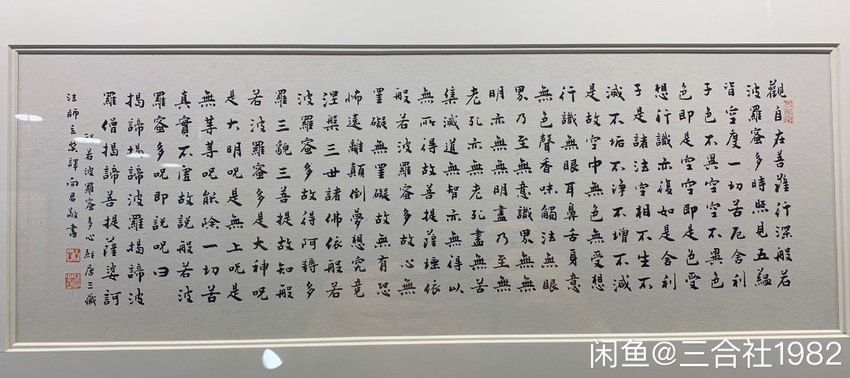 觀自在菩薩行深般若
波羅蜜多時照見五蘊
皆空度一切苦厄舍利
子色不異空空不異色
色即是空空即是色受
想行識亦復如是舍利
子是諸法空相不生不
滅不垢不淨不增不減
是故空中無色無受想
行識無眼耳鼻舌身意
無色聲香味觸法無眼
界乃至無意識界無無
明亦無無明盡乃至無
老死亦無老死盡無苦
集滅道無智亦無得以
無所得故菩提薩埵依
般若波羅蜜多故心無
罣礙無罣礙故無有恐
怖遠離顛倒夢想究竟
涅槃三世諸佛依般若
波羅蜜多故得阿耨多
羅三藐三菩提故知般
若波羅蜜多是大神呪
是大明呪是無上呪是
無等等呪能除一切苦
真實不虛故說般若波
羅蜜多呪即說呪曰
揭諦揭諦波羅揭諦波
羅僧揭諦菩提薩婆訶
般若波羅蜜多心經唐三藏
法師玄奘譯 向君敬書
闲鱼@三合社1982